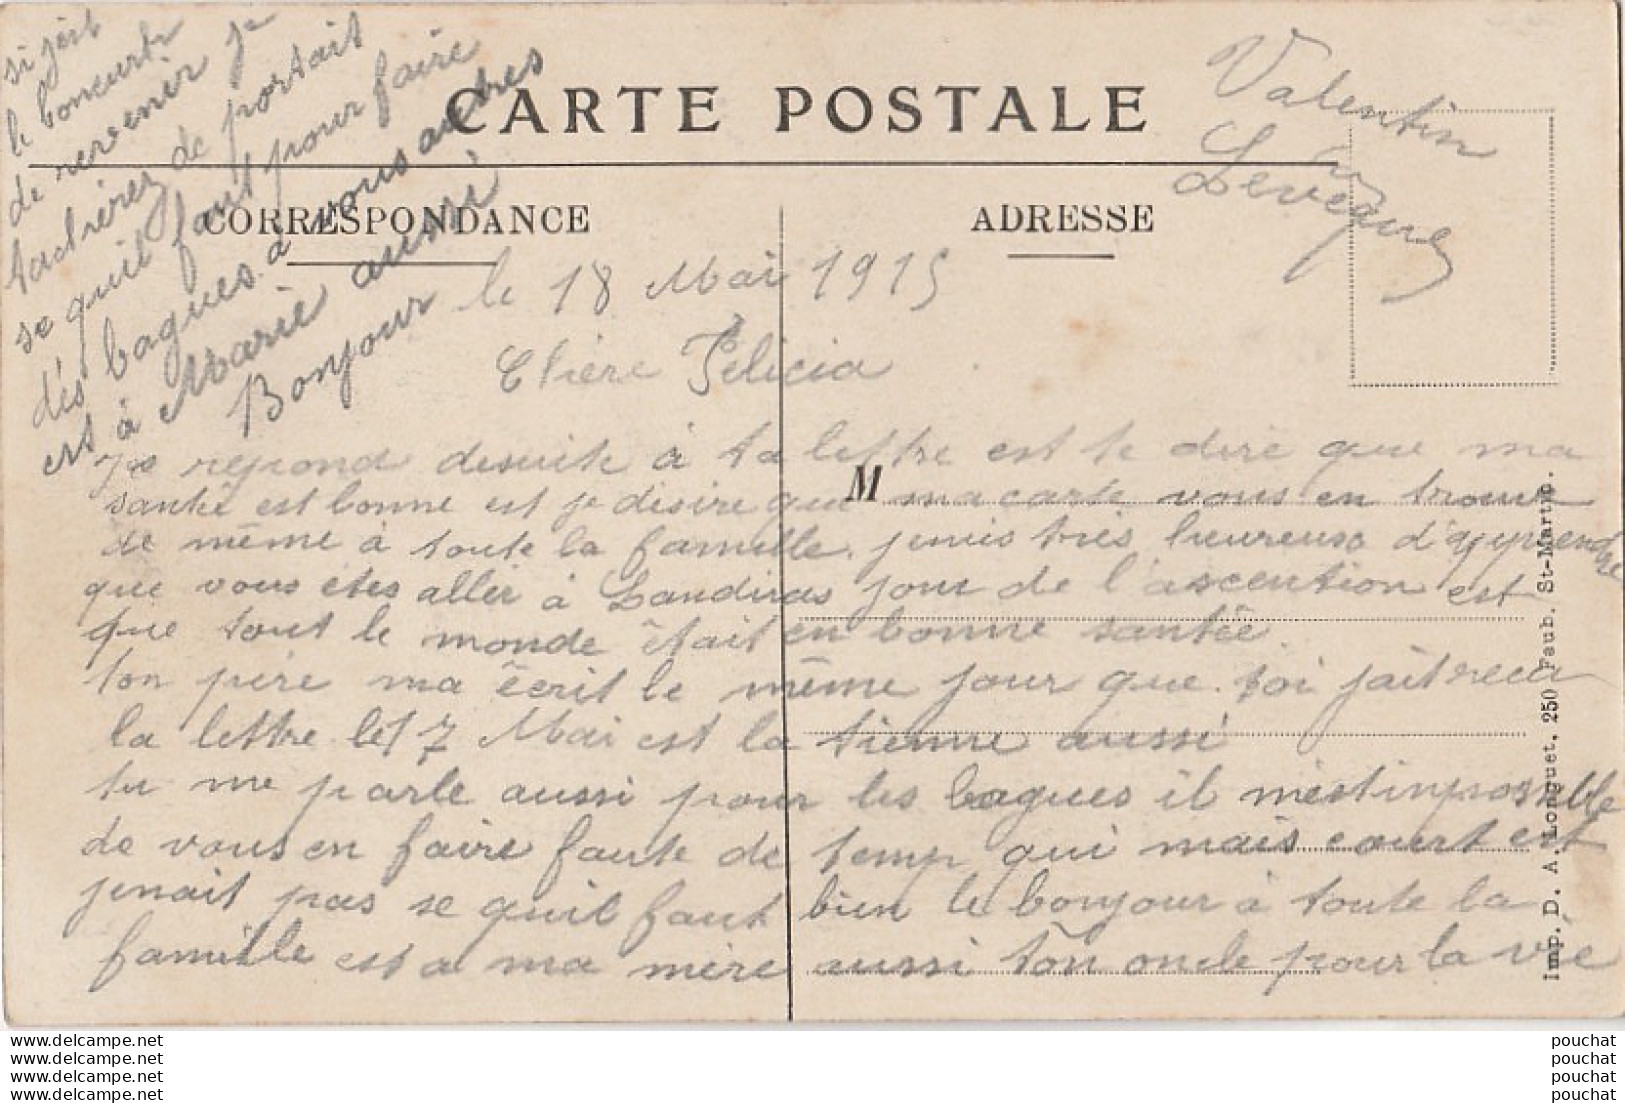 CARTE POSTALE
CORRESPONDANCE
ADRESSE
Valentin
Leveque
le 18 Mai 1915
Chère Felicia
Je repond desuite à ta lettre est te dire que ma
santé est bonne est je désire que ma carte vous en trouve
de même à toute la famille. jenis très heureuse d'apprendre
que vous étes aller à Landiras jour de l'ascention est
que tout le monde était en bonne santée.
ton père ma écrit le même jour que toi jait recu
la lettre let 17 Mai est la tienne aussi
tu me parle aussi pour les bagues il m'est inpossible
de vous en faire faute de temp qui mais court est
jenait pas se quil faut bien le bonjour à toute la
famille est a ma mère aussi ton oncle pour la vie
M
si jait
le boneurt
de revenir je
tacherez de portait
se quil faut pour faire
dés bagues a vous autres
est à Marie aussi
Bonjour
Imp. D. A. Longuet, 250 Faub. St-Martin.
www.delcampe.net pouchat
www.delcampe.net pouchat
www.delcampe.net pouchat
www.delcampe.net pouchat